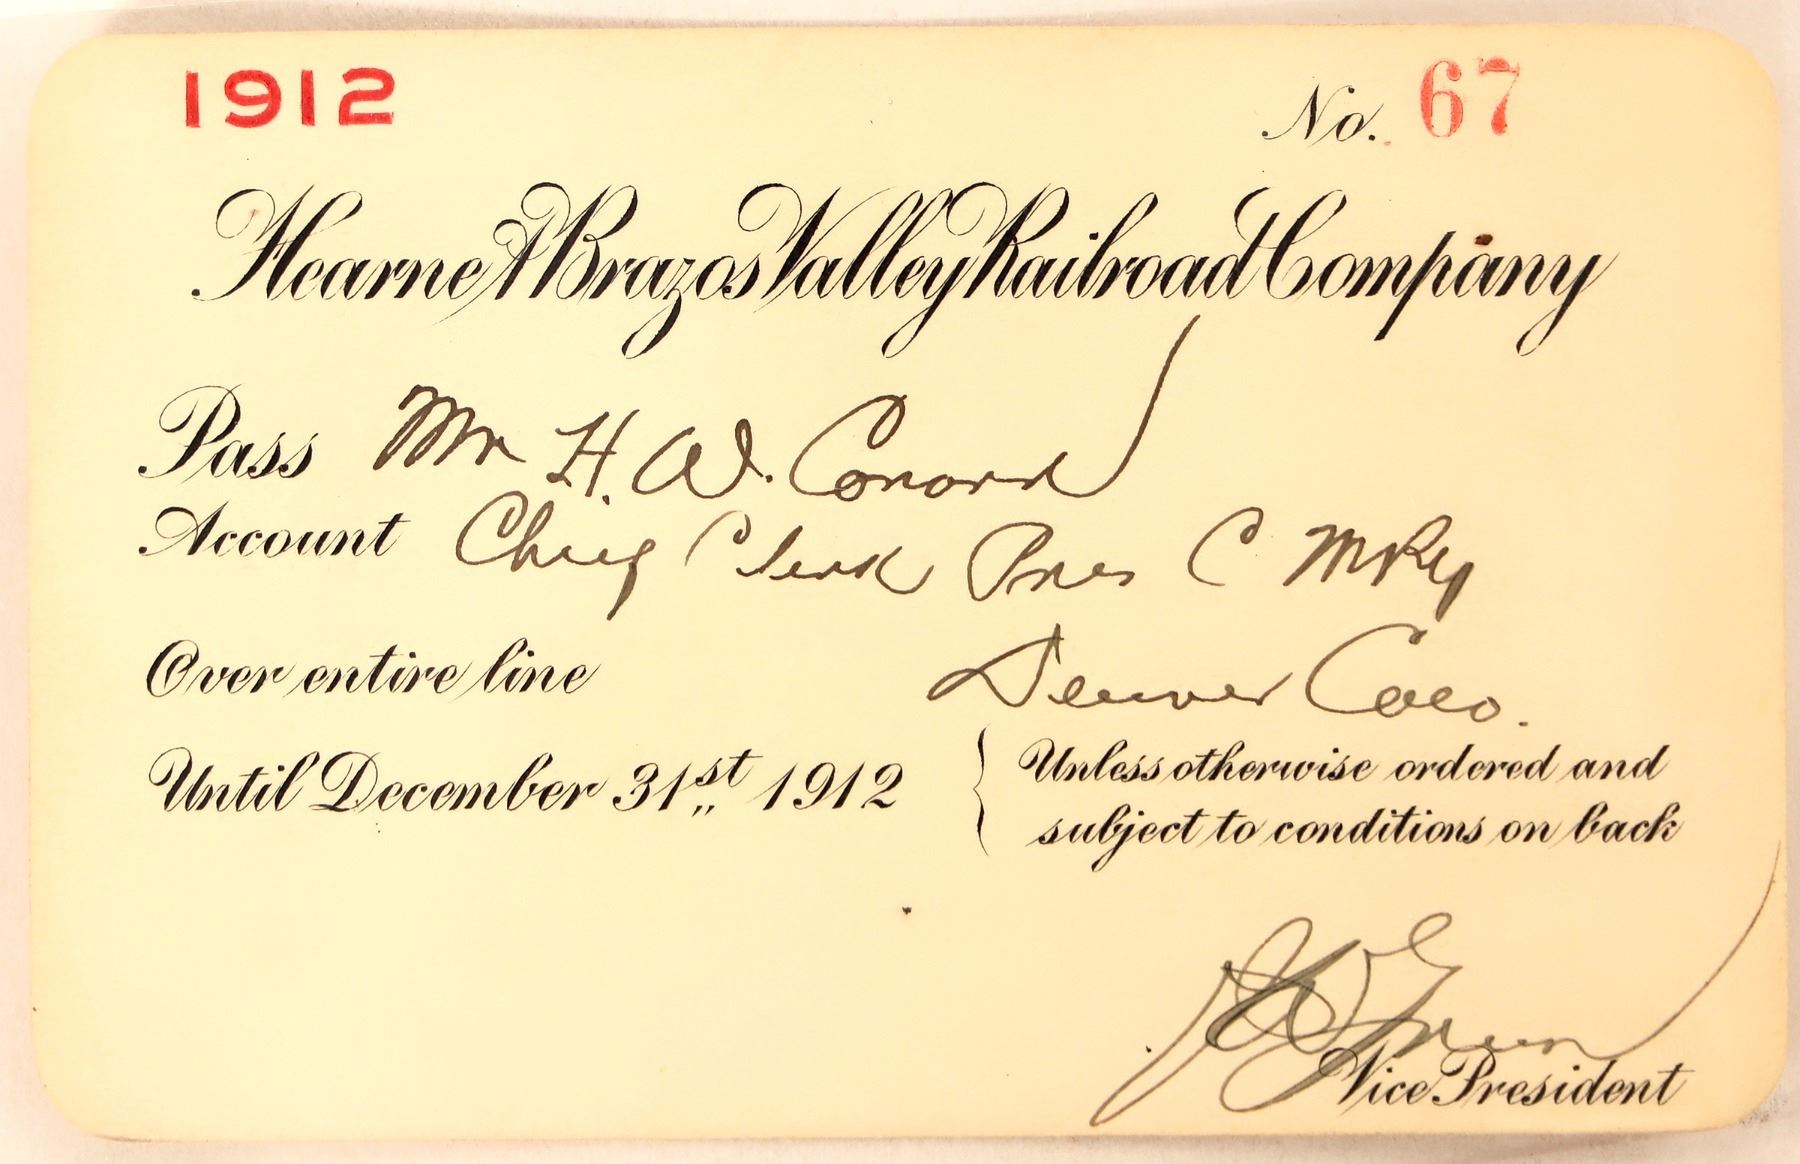 1912
No. 67
Hearne & Brazos Valley Railroad Company
Pass Mr H. W. Conard
Account Chief Clerk Pres C M Ry
Over entire line Denver Colo.
Until December 31st 1912 { Unless otherwise ordered and
subject to conditions on back
Vice President